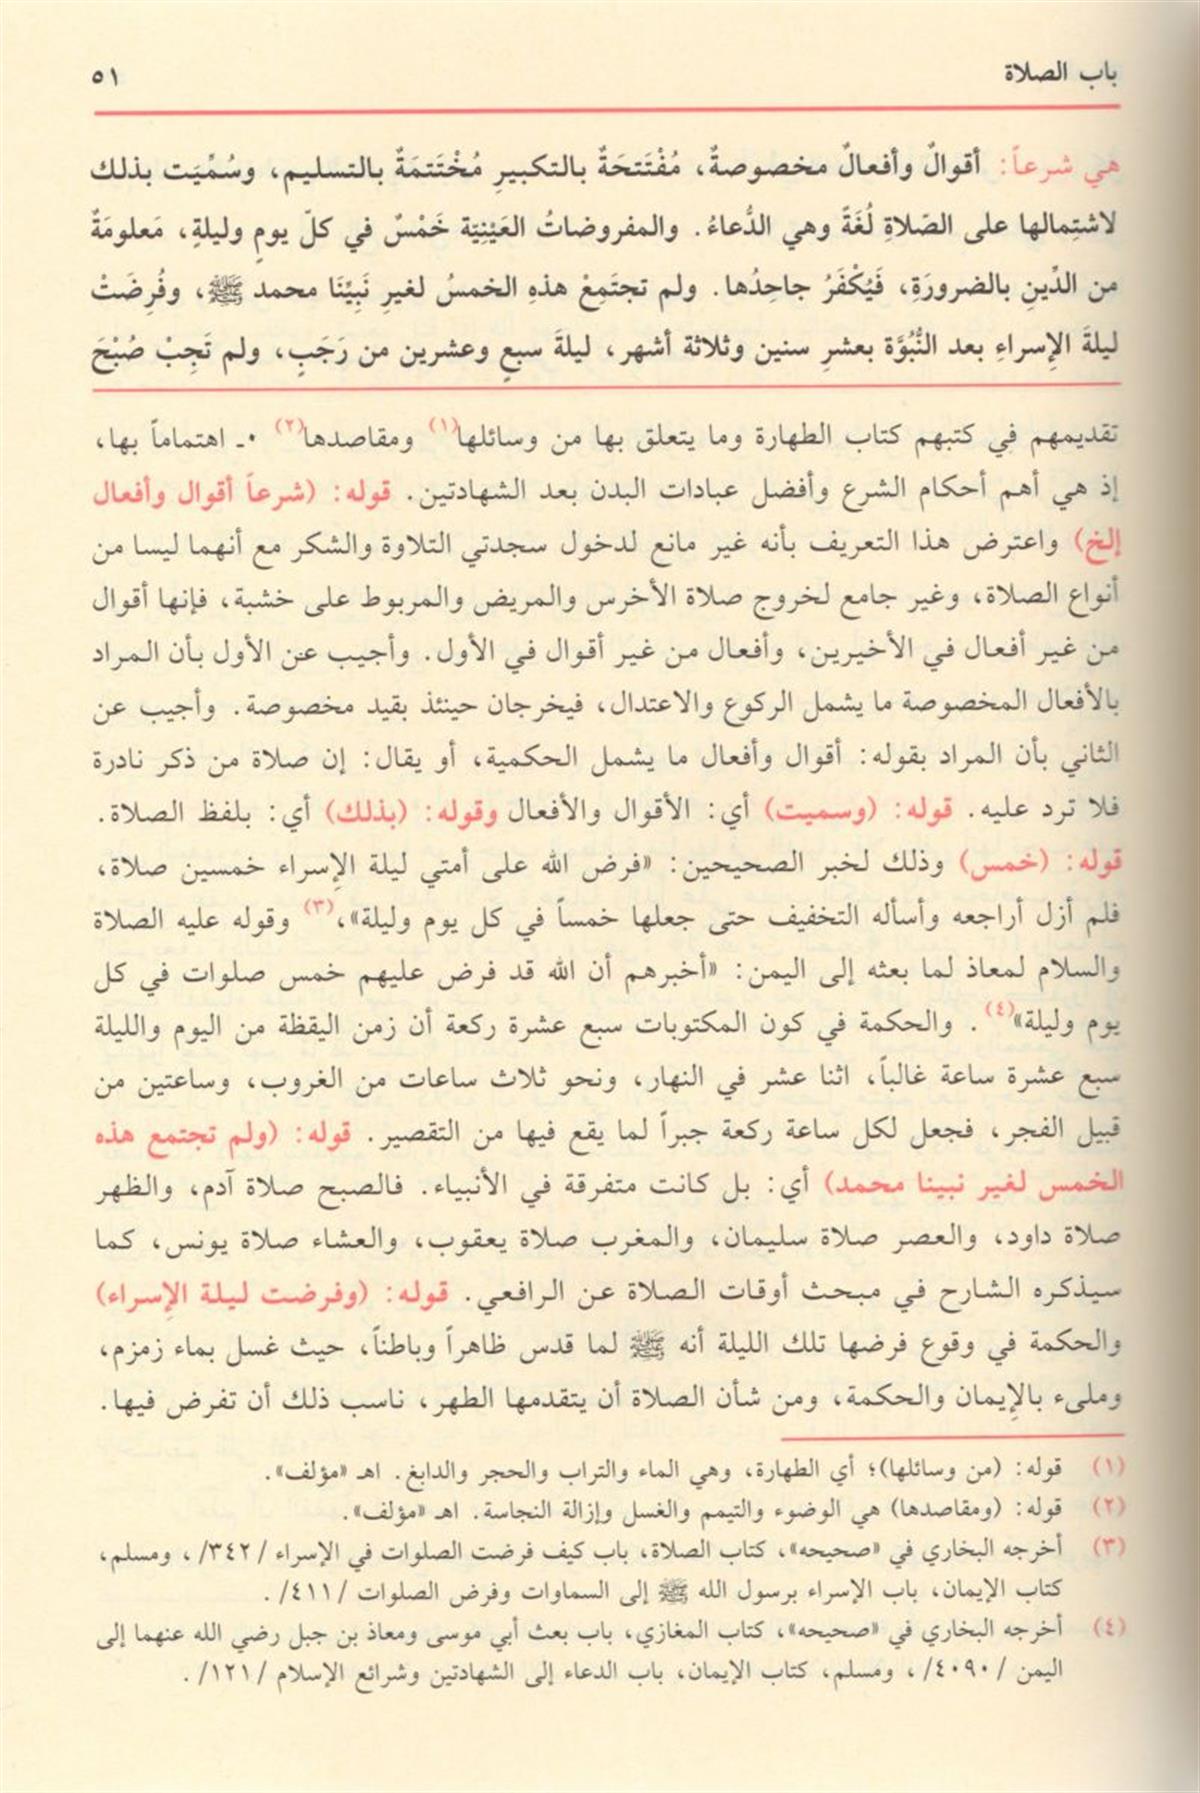 باب الصلاة ٥١
هي شرعاً: أقوالٌ وأفعالٌ مخصوصةٌ، مُفْتَتحَةٌ بالتكبيرِ مُخْتَتمَةٌ بالتسليم، وسُمِّيَت بذلك
لاشتِمالها على الصَلاةِ لُغَةً وهي الدُّعاءُ. والمفروضاتُ العَيْنِيّة خَمْسٌ في كلّ يومٍ وليلةِ، مَعلومَةٌ
من الدِّينِ بالضرورَةِ، فَيُكْفَرُ جاحِدُها. ولم تجتَمِعْ هذهِ الخمسُ لغيرِ نَبِيِّنَا محمد ﷺ، وفُرِضَتْ
ليلةَ الإِسراءِ بعد النُّبُوَّة بعشرِ سنين وثلاثة أشهر، ليلةَ سبعٍ وعشرين من رَجَبٍ، ولم تَجِبْ صُبْحَ
تقديمهم في كتبهم كتاب الطهارة وما يتعلق بها من وسائلها(١) ومقاصدها(٢) ـ اهتماماً بها،
إذ هي أهم أحكام الشرع وأفضل عبادات البدن بعد الشهادتين. قوله: (شرعاً أقوال وأفعال
إلخ) واعترض هذا التعريف بأنه غير مانع لدخول سجدتي التلاوة والشكر مع أنهما ليسا من
أنواع الصلاة، وغير جامع لخروج صلاة الأخرس والمريض والمربوط على خشبة، فإنها أقوال
من غير أفعال في الأخيرين، وأفعال من غير أقوال في الأول. وأجيب عن الأول بأن المراد
بالأفعال المخصوصة ما يشمل الركوع والاعتدال، فيخرجان حينئذ بقيد مخصوصة. وأجيب عن
الثاني بأن المراد بقوله: أقوال وأفعال ما يشمل الحكمية، أو يقال: إن صلاة من ذكر نادرة
فلا ترد عليه. قوله: (وسميت) أي: الأقوال والأفعال وقوله: (بذلك) أي: بلفظ الصلاة.
قوله: (خمس) وذلك لخبر الصحيحين: «فرض الله على أمتي ليلة الإِسراء خمسين صلاة،
فلم أزل أراجعه وأسأله التخفيف حتى جعلها خمساً في كل يوم وليلة»،(٣) وقوله عليه الصلاة
والسلام لمعاذ لما بعثه إلى اليمن: «أخبرهم أن الله قد فرض عليهم خمس صلوات في كل
يوم وليلة»(٤). والحكمة في كون المكتوبات سبع عشرة ركعة أن زمن اليقظة من اليوم والليلة
سبع عشرة ساعة غالباً، اثنا عشر في النهار، ونحو ثلاث ساعات من الغروب، وساعتين من
قبيل الفجر، فجعل لكل ساعة ركعة جبراً لما يقع فيها من التقصير. قوله: (ولم تجتمع هذه
الخمس لغير نبينا محمد) أي: بل كانت متفرقة في الأنبياء. فالصبح صلاة آدم، والظهر
صلاة داود، والعصر صلاة سليمان، والمغرب صلاة يعقوب، والعشاء صلاة يونس، كما
سيذكره الشارح في مبحث أوقات الصلاة عن الرافعي. قوله: (وفرضت ليلة الإِسراء)
والحكمة في وقوع فرضها تلك الليلة أنه ﷺ لما قدس ظاهراً وباطناً، حيث غسل بماء زمزم،
وملىء بالإِيمان والحكمة، ومن شأن الصلاة أن يتقدمها الطهر، ناسب ذلك أن تفرض فيها.
(١) قوله: (من وسائلها)؛ أي الطهارة، وهي الماء والتراب والحجر والدابغ. اهـ «مؤلف».
(٢) قوله: (ومقاصدها) هي الوضوء والتيمم والغسل وإزالة النجاسة. اهـ «مؤلف».
(٣) أخرجه البخاري في «صحيحه»، كتاب الصلاة، باب كيف فرضت الصلوات في الإسراء /٣٤٢/، ومسلم،
كتاب الإيمان، باب الإسراء برسول الله ﷺ إلى السماوات وفرض الصلوات /٤١١/.
(٤) أخرجه البخاري في «صحيحه»، كتاب المغازي، باب بعث أبي موسى ومعاذ بن جبل رضي الله عنهما إلى
اليمن /٤٠٩٠/، ومسلم، كتاب الإيمان، باب الدعاء إلى الشهادتين وشرائع الإسلام /١٢١/.